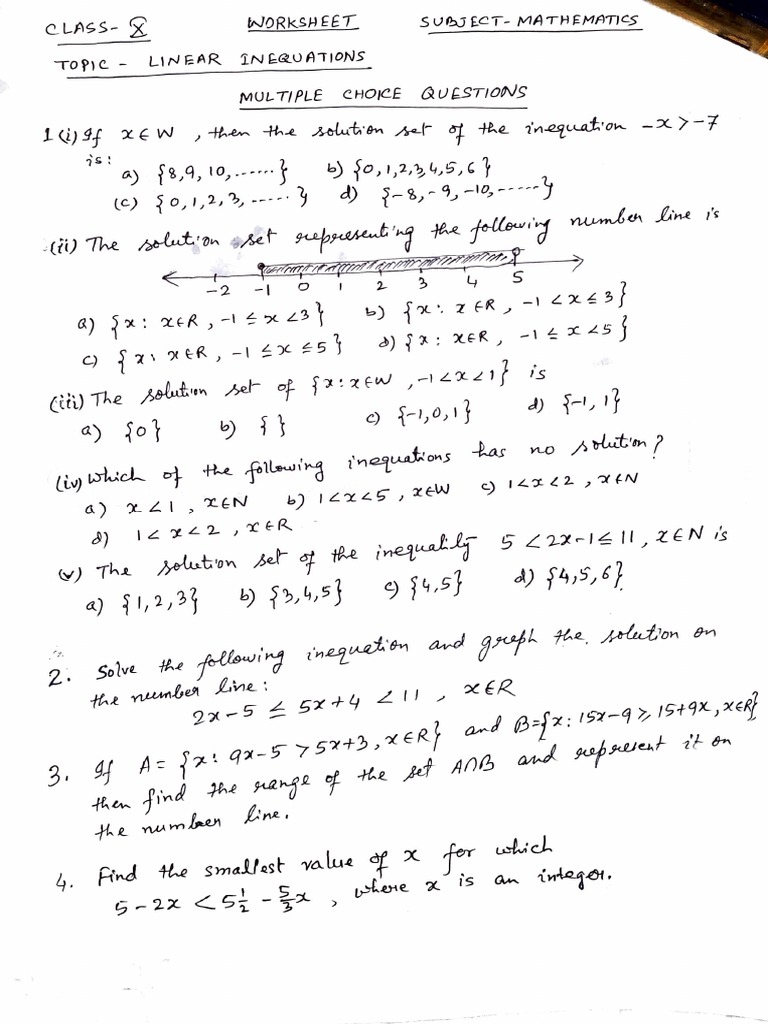 CLASS- X WORKSHEET SUBJECT- MATHEMATICS
TOPIC - LINEAR INEQUATIONS
MULTIPLE CHOICE QUESTIONS
1 (i) If x ∈ W , then the solution set of the inequation -x > -7
is: a) {8,9,10,......} b) {0,1,2,3,4,5,6}
(c) {0,1,2,3,......} d) {-8,-9,-10,-----}
(ii) The solution set representing the following number line is
-2 -1 0 1 2 3 4 5
a) {x: x∈R, -1 ≤ x < 3} b) {x: x∈R, -1 < x ≤ 3}
c) {x: x∈R, -1 ≤ x ≤ 5} d) {x: x∈R, -1 ≤ x < 5}
(iii) The solution set of {x: x∈W, -1 < x < 1} is
a) {0} b) { } c) {-1,0,1} d) {-1, 1}
(iv) Which of the following inequations has no solution?
a) x < 1 , x∈N b) 1 < x < 5 , x∈W c) 1 < x < 2 , x∈N
d) 1 < x < 2 , x∈R
(v) The solution set of the inequality 5 < 2x-1 ≤ 11, x∈N is
a) {1,2,3} b) {3,4,5} c) {4,5} d) {4,5,6}
2. Solve the following inequation and graph the solution on
the number line:
2x-5 ≤ 5x+4 < 11 , x∈R
3. If A = {x: 9x-5 > 5x+3, x∈R} and B={x: 15x-9 ≥ 15+9x, x∈R}
then find the range of the set A∩B and represent it on
the number line.
4. Find the smallest value of x for which
5-2x < 5 1/2 - 5/3 x , where x is an integer.